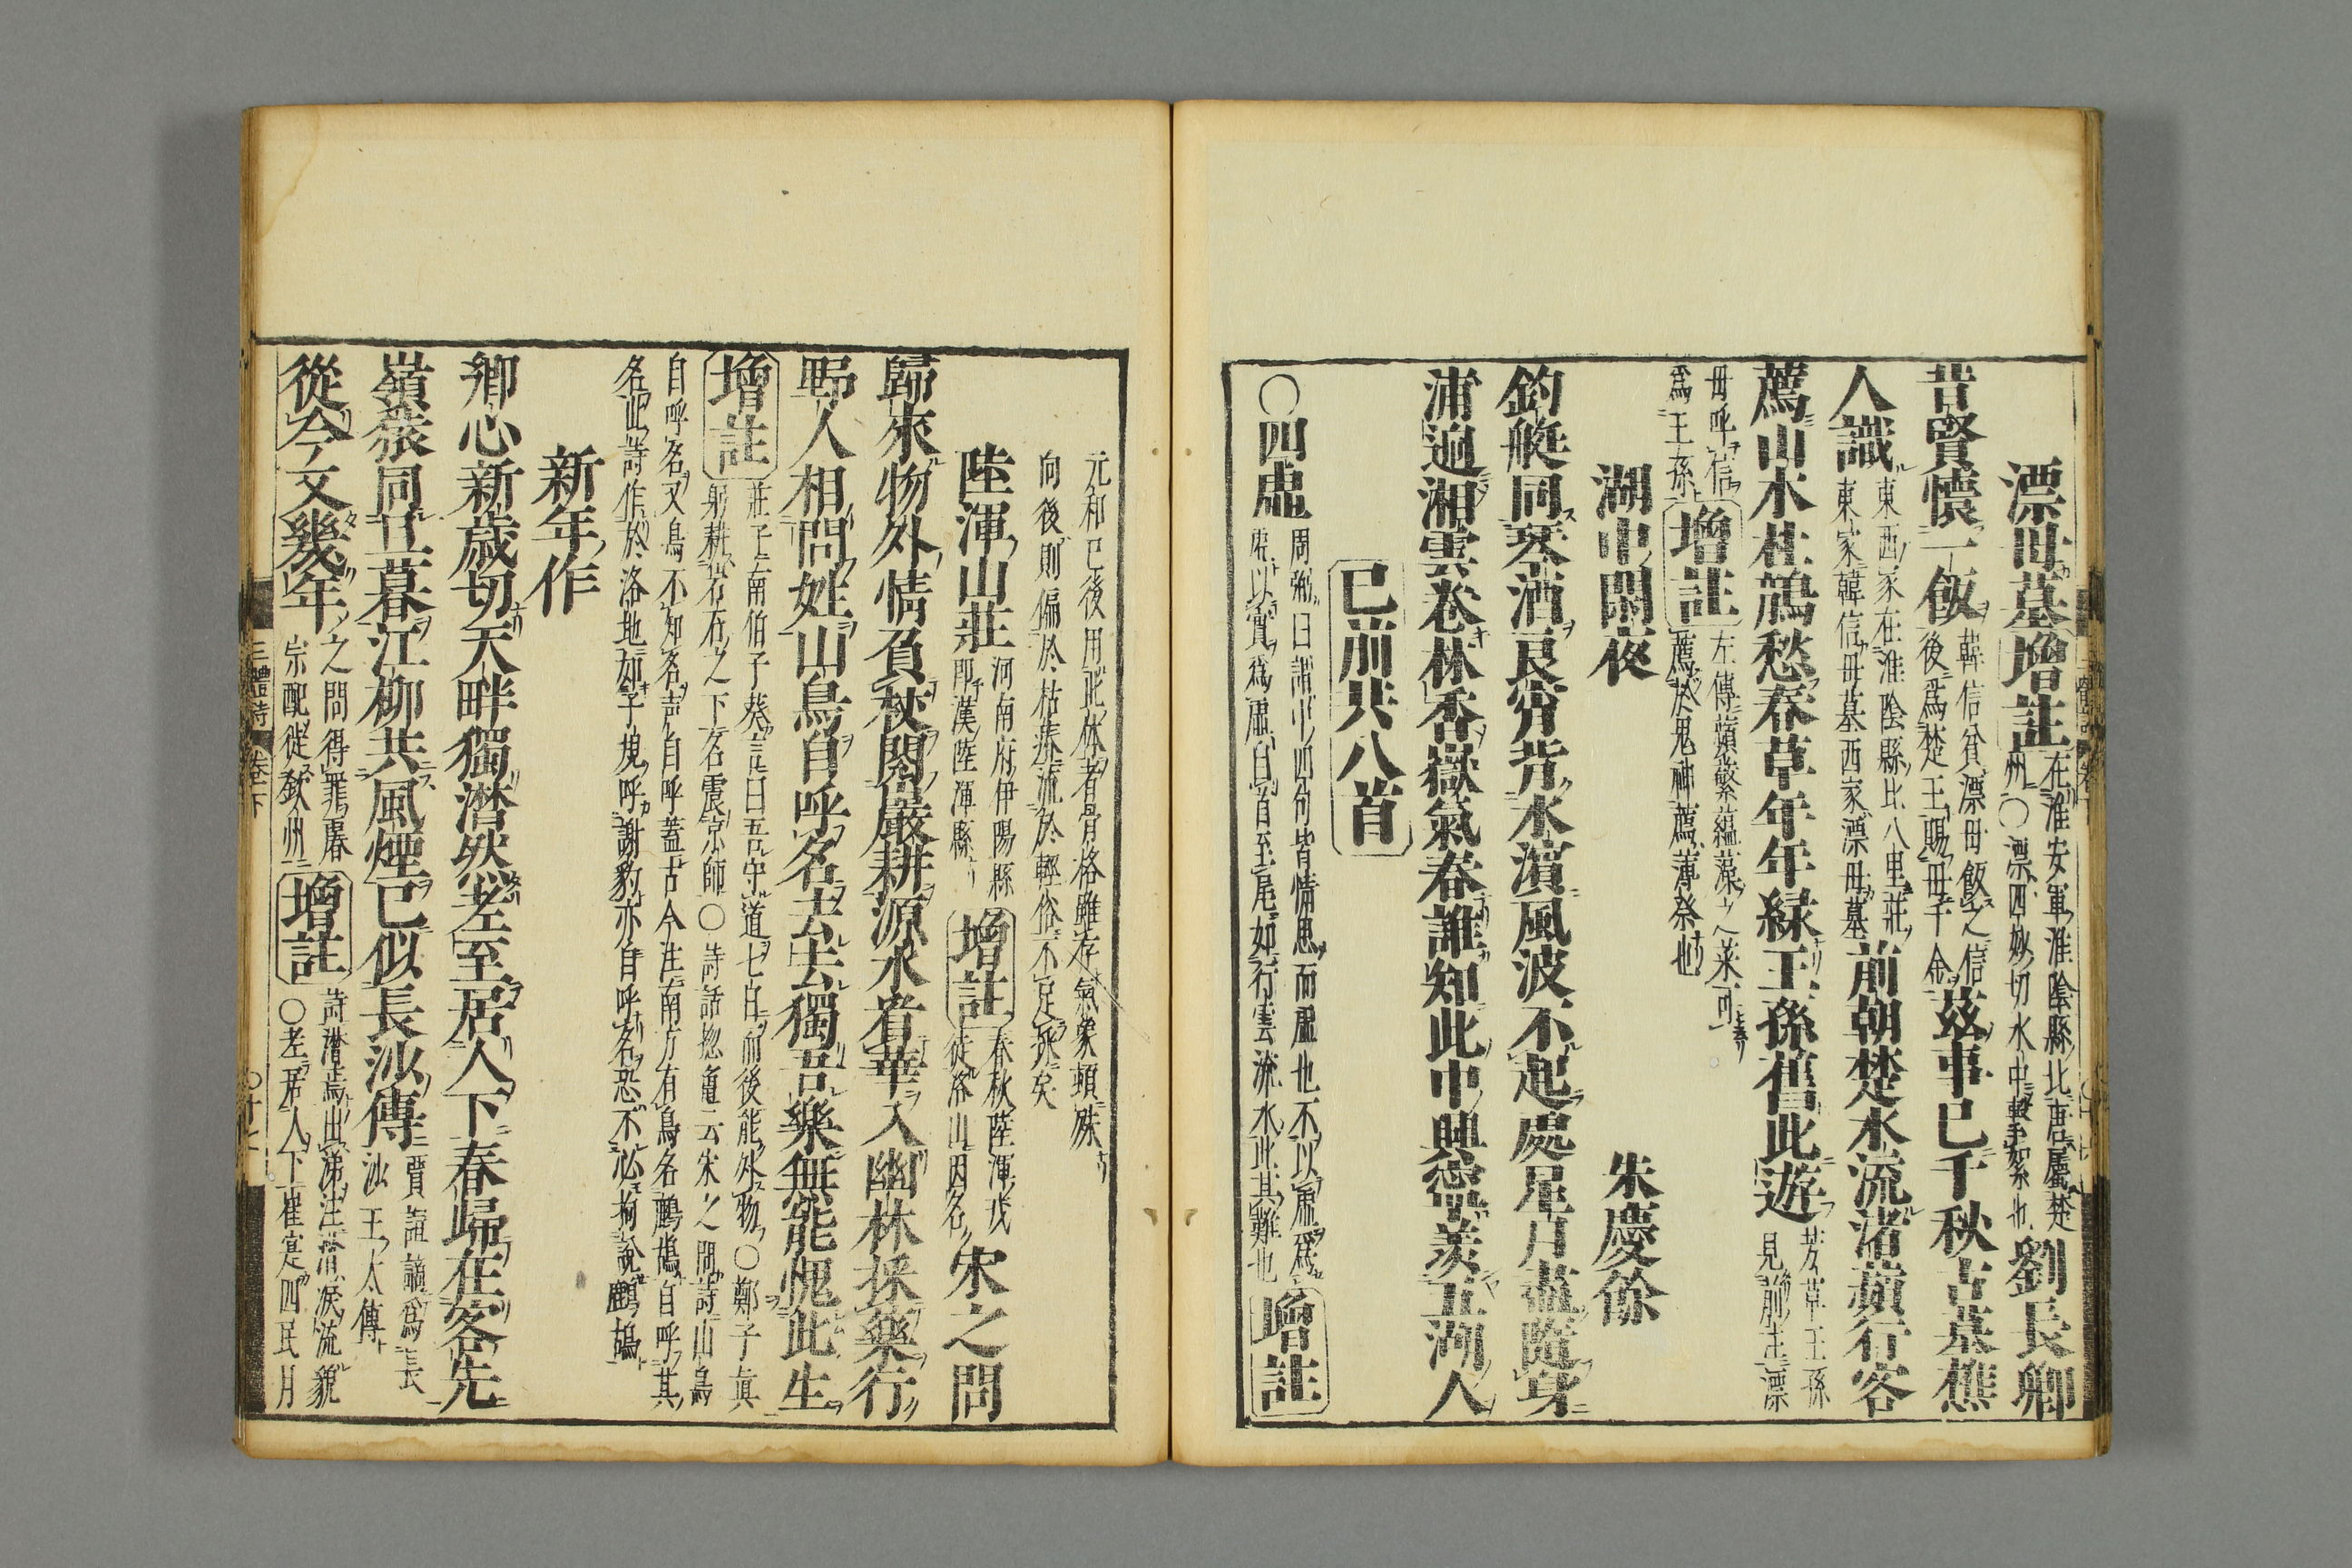 漂母墓 增註 在淮安軍淮陰縣北唐屬楚州○漂匹妙切水中擊絮也 劉長卿
昔賢懷一飯 韓信貧漂母飯之信後爲楚王賜母千金 茲事已千秋古墓樵
人識 東西冢在淮陰縣北八里莊東家韓信母墓西冢漂母墓 前朝楚水流渚蘋行客
薦山木杜鵑愁春草年年綠王孫舊此遊 芳草王孫見前注漂
母呼信爲王孫 增註 左傳蘋蘩蘊藻之菜可薦於鬼神薦薄祭也
湖中閑夜 朱慶餘
釣艇同琴酒良宵背水濱風波不起處星月盡隨身
浦迥湘雲卷林香嶽氣春誰知此中興寧羨五湖人
已前共八首
○四虛 周弼曰謂中四句皆情思而虛也不以虛爲虛以實爲虛自首至尾如行雲流水此其難也 增註
元和已後用此体者骨格雖存氣象頓殊
向後則偏於枯瘠流於輕俗不足採矣
陸渾山莊 河南府伊陽縣卽漢陸渾縣 增註 春秋陸渾戎徙洛山因名 宋之問
歸來物外情負杖閱巖耕源水看華入幽林採藥行
野人相問姓山鳥自呼名去去獨吾樂無能愧此生
增註 莊子南伯子葵言曰吾守道七日而後能外物○鄭子眞躬耕岩石之下名震京師○詩話捴龜云宋之問詩山鳥
自呼名又鳥不知名声自呼蓋古今注南方有鳥名鷓鴣自呼其
名此詩作於洛地如子規呼謝豹亦自呼名恐不必拘說鷓鴣
新年作
鄉心新歲切天畔獨潸然老至居人下春歸在客先
嶺猿同旦暮江柳共風煙已似長沙傅 賈誼謫爲長沙王太傅
從今又幾年 之問得罪睿宗配徙欽州 增註 詩潸焉出涕注潸淚流貌○老居人下崔寔四民月
三體詩 卷下